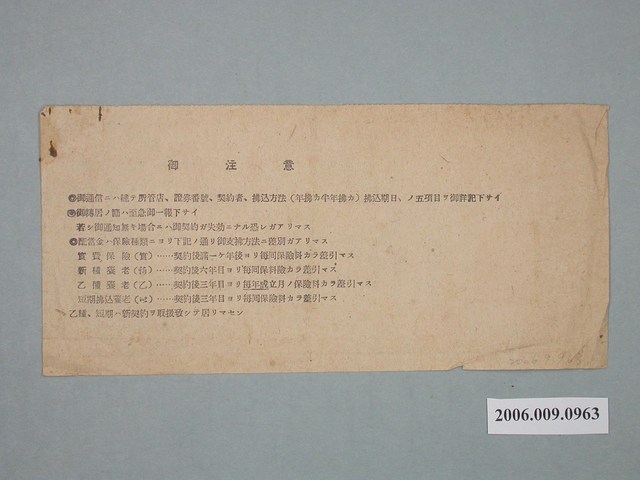 御注意
◎御通信ニハ總テ所管店、證券番號、契約者、拂込方法(年拂カ半年拂カ)拂込期日、ノ五項目ヲ御詳記下サイ
◎御轉居ノ際ハ至急御一報下サイ
若シ御通知無キ場合ニハ御契約ガ失効ニナル恐レガアリマス
◎配當金ハ保險種類ニヨリ下記ノ通リ御支拂方法ニ差別ガアリマス
實費保險(實)……契約後滿一ケ年後ヨリ毎回保險料カラ差引マス
新種養老(係)……契約後六年目ヨリ毎回保險料カラ差引マス
乙種養老(乙)……契約後三年目ヨリ毎年成立月ノ保險料カラ差引マス
短期拂込養老(短)……契約後三年目ヨリ毎回保險料カラ差引マス
乙種、短期ハ新契約ヲ取扱致シテ居リマセン
2006.009.0963